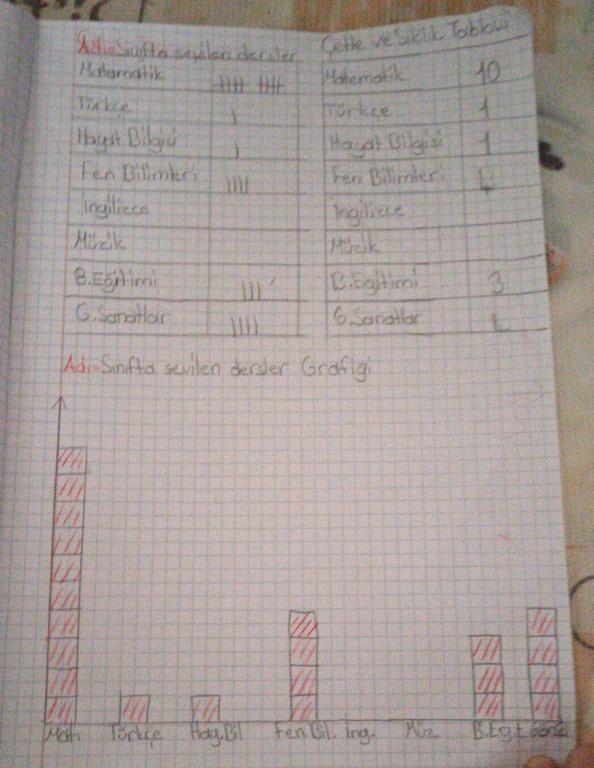 Adı=Sınıfta sevilen dersler
Matamatik
Türkçe
Hayat Bilgisi
Fen Bilimleri
İngilizce
Müzik
B.Eğitimi
G.Sanatlar
Çetle ve Sıklık Tablosu
Matematik 10
Türkçe 1
Hayat Bilgisi 1
Fen Bilimleri 4
İngilizce
Müzik
B.Egitimi 3
G.Sanatlar 4
Adı=Sınıfta sevilen dersler Grafiği
Mat Türkçe Hag.Bil Fen Bil. İng. Müz B.Egit